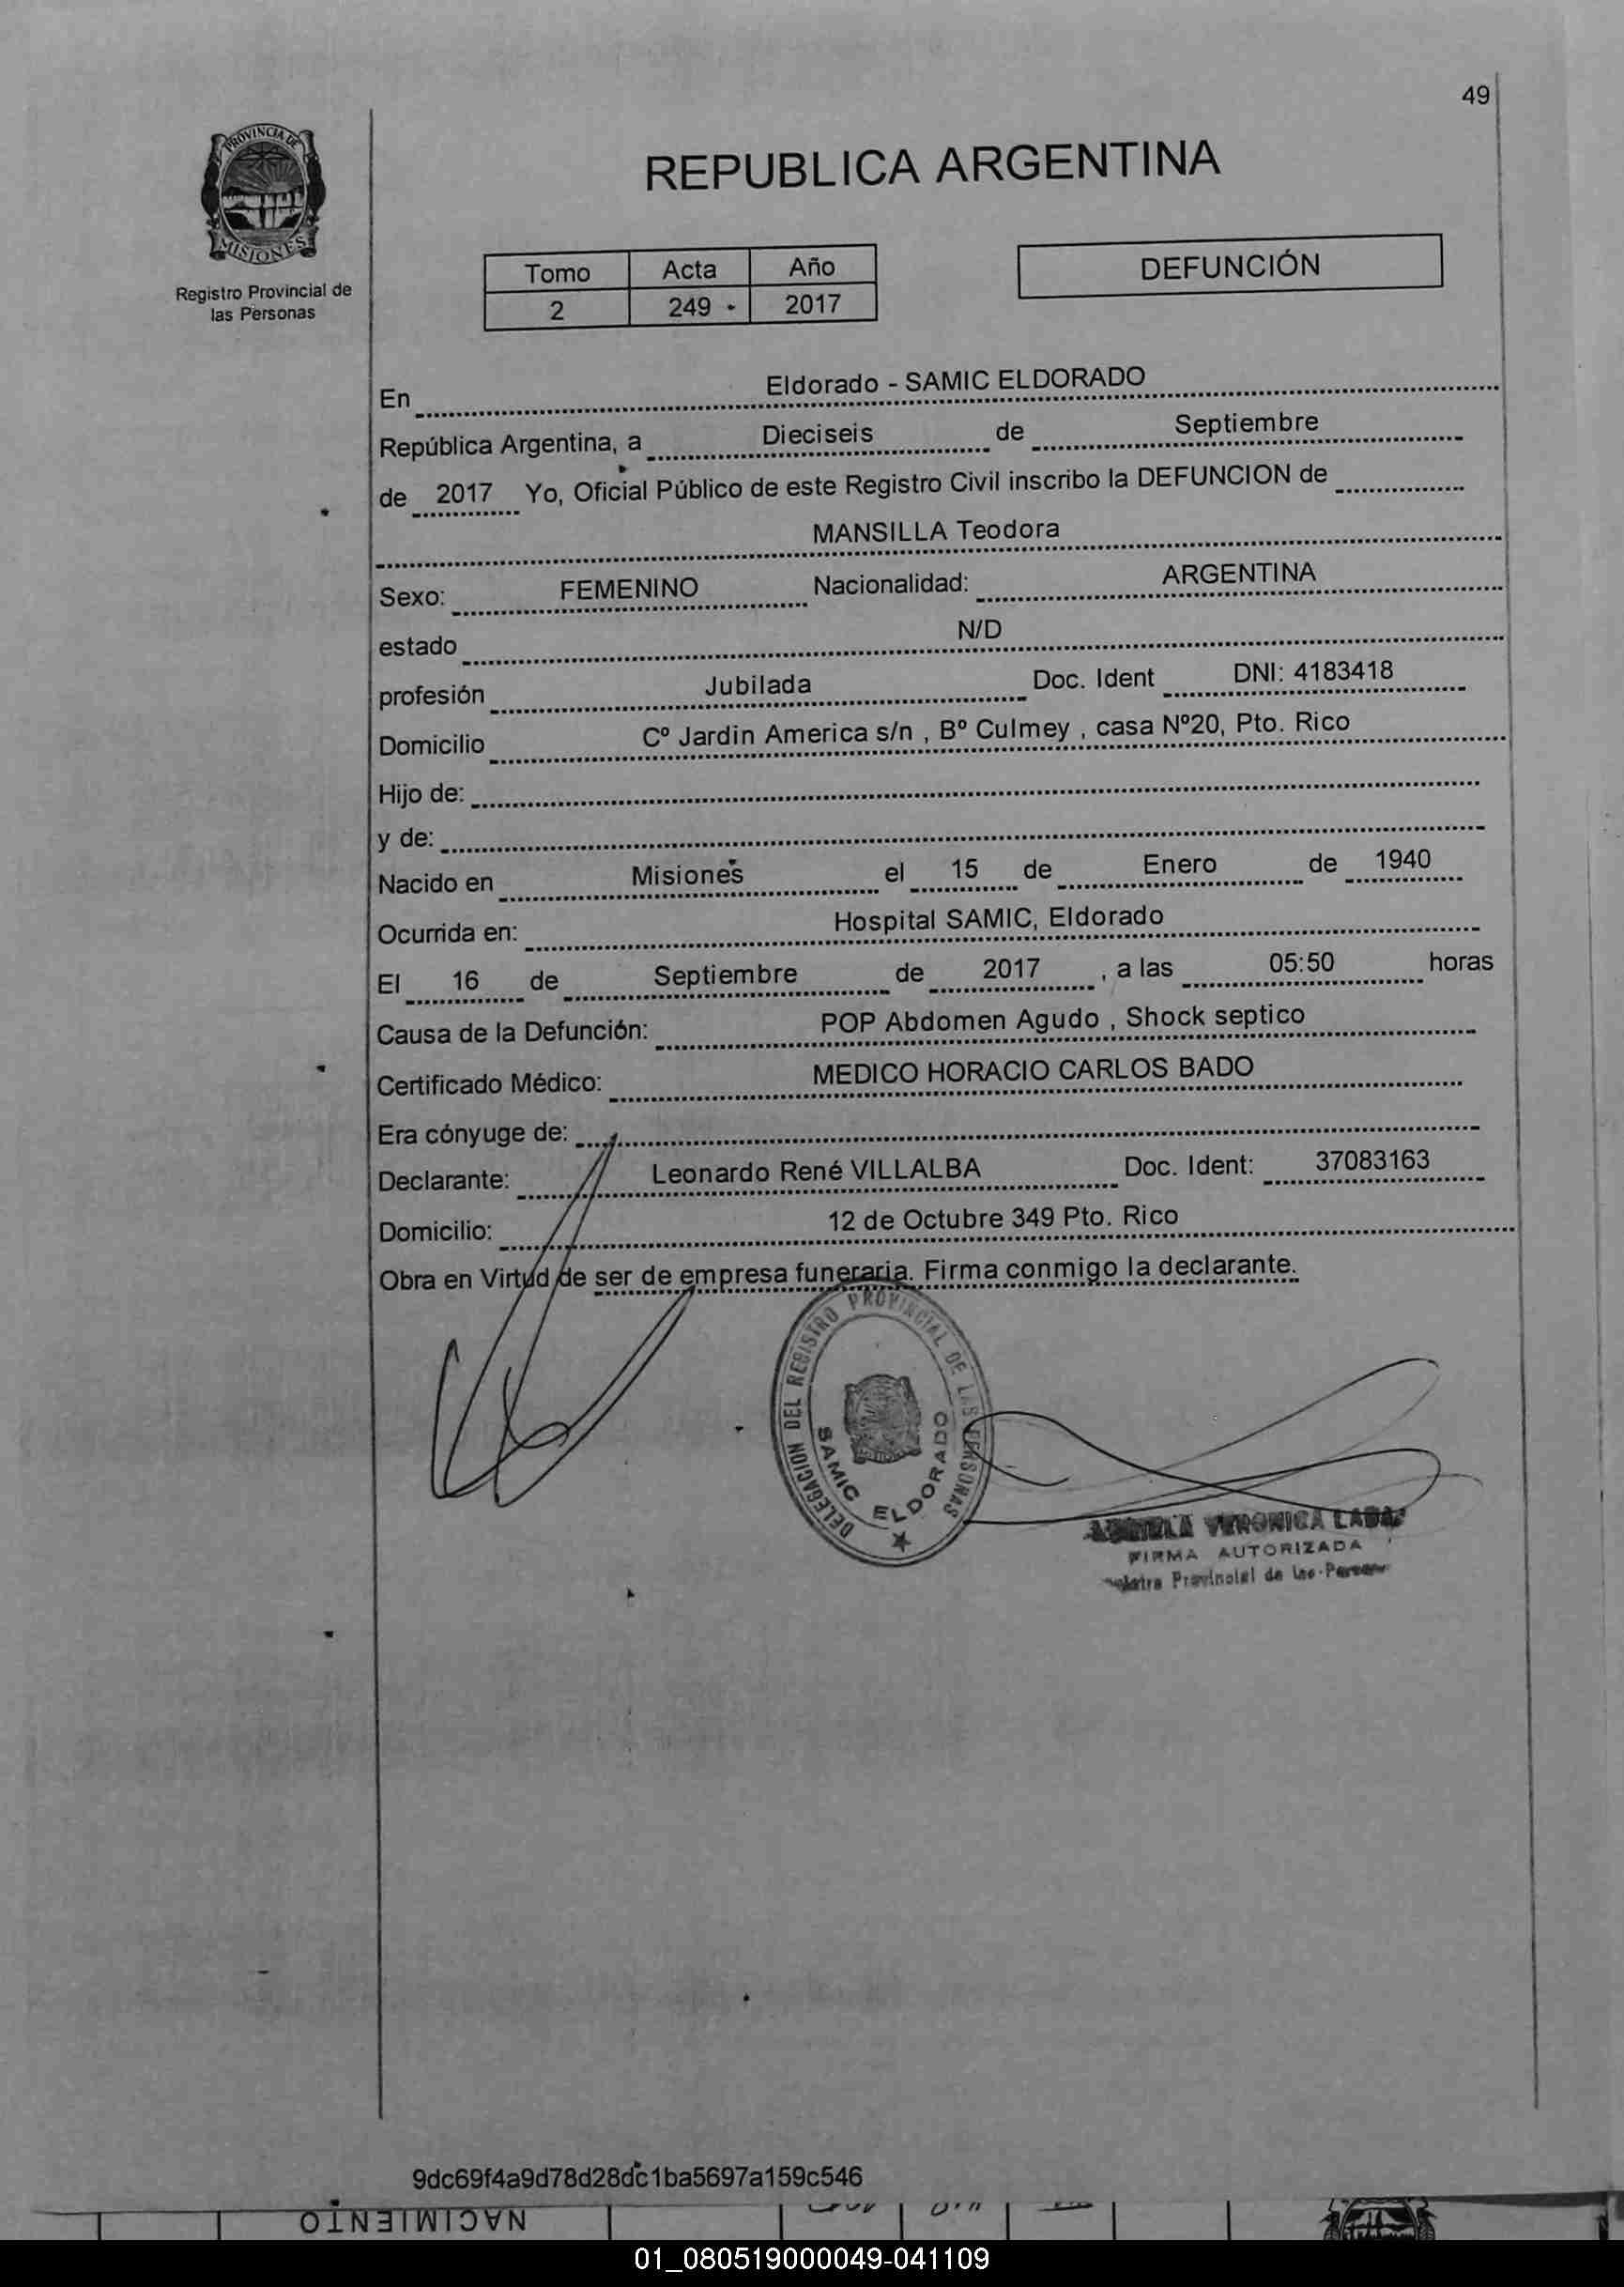 49
PROVINCIA DE
MISIONES
Registro Provincial de
las Personas
REPUBLICA ARGENTINA
Tomo Acta Año
2 249 - 2017
DEFUNCIÓN
En Eldorado - SAMIC ELDORADO
República Argentina, a Dieciseis de Septiembre
de 2017 Yo, Oficial Público de este Registro Civil inscribo la DEFUNCION de
MANSILLA Teodora
Sexo: FEMENINO Nacionalidad: ARGENTINA
estado N/D
profesión Jubilada Doc. Ident DNI: 4183418
Domicilio Cº Jardin America s/n , Bº Culmey , casa Nº20, Pto. Rico
Hijo de:
y de:
Nacido en Misiones el 15 de Enero de 1940
Ocurrida en: Hospital SAMIC, Eldorado
El 16 de Septiembre de 2017 , a las 05:50 horas
Causa de la Defunción: POP Abdomen Agudo , Shock septico
Certificado Médico: MEDICO HORACIO CARLOS BADO
Era cónyuge de:
Declarante: Leonardo René VILLALBA Doc. Ident: 37083163
Domicilio: 12 de Octubre 349 Pto. Rico
Obra en Virtud de ser de empresa funeraria. Firma conmigo la declarante.
DELEGACION DEL REGISTRO PROVINCIAL DE LAS PERSONAS
SAMIC ELDORADO
VERONICA
FIRMA AUTORIZADA
Provincial de las
9dc69f4a9d78d28dc1ba5697a159c546
NACIMIENTO
01_080519000049-041109